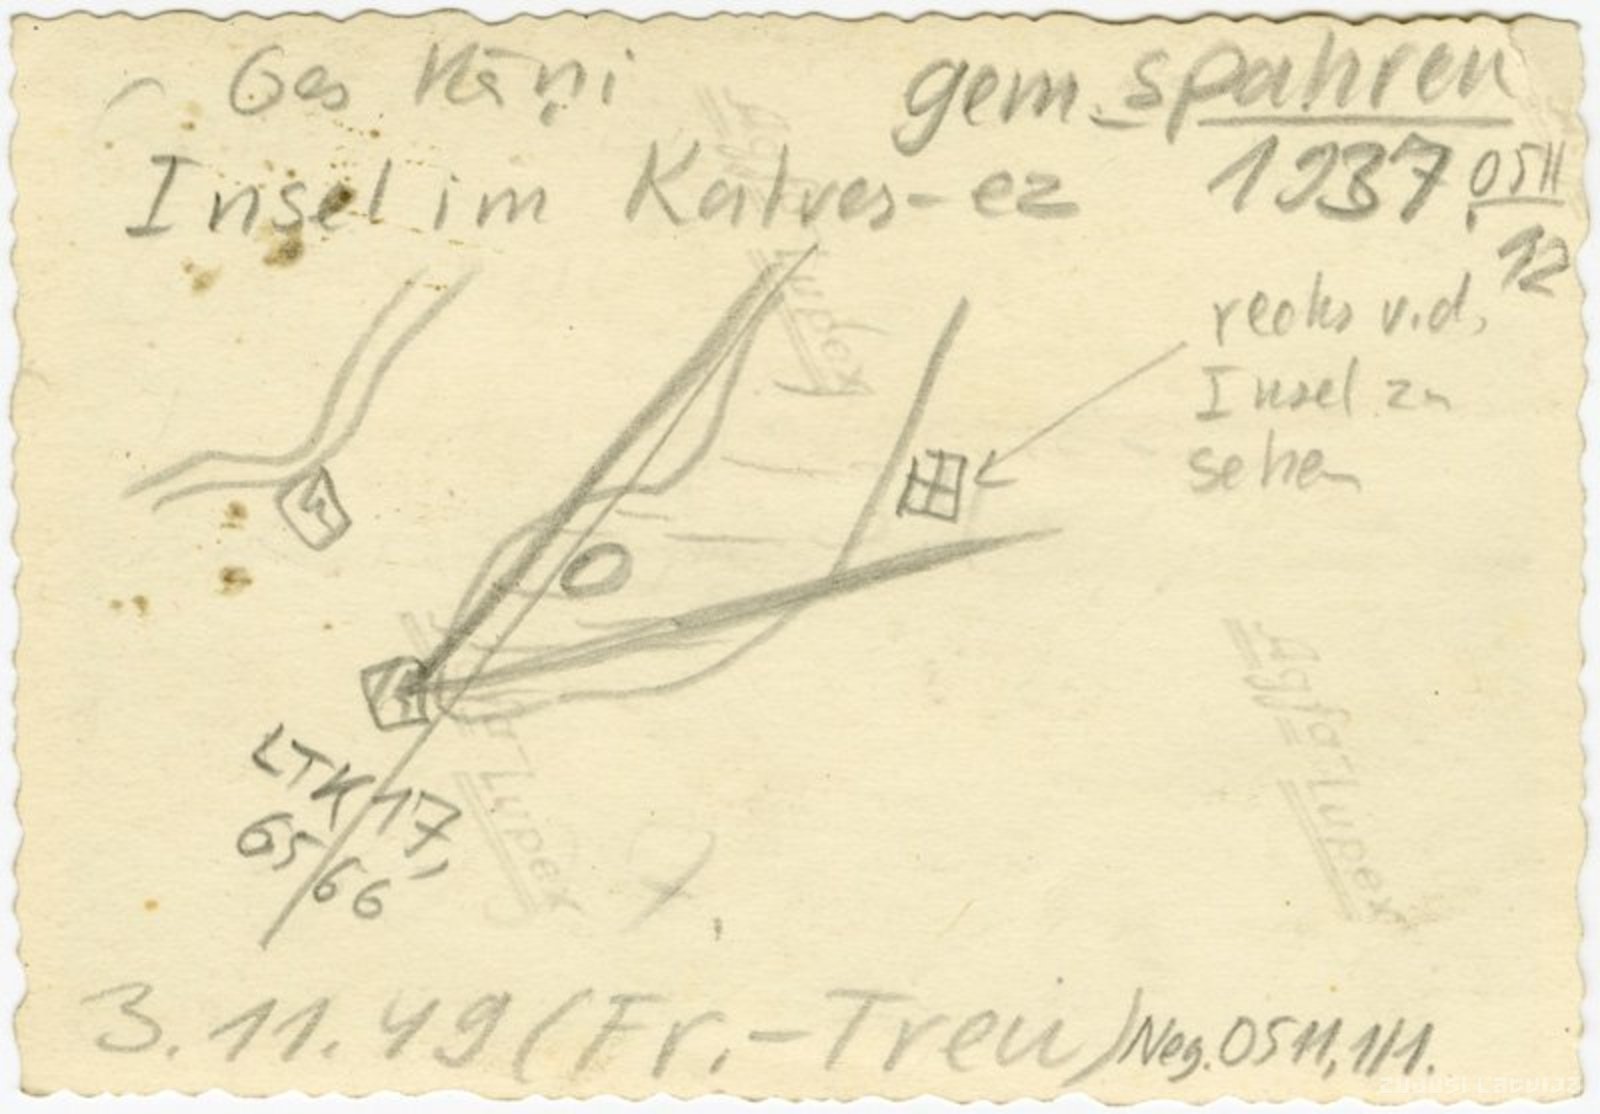 Ges Kāņi gem. Spahren
Insel im Katves-ez 1937 0511
12
rechts v.d.
Insel zu
sehen
LTK 17,
65 66
3.11.49 (Fr.-Treu) Neg. 0511, 1/1.
Agfa-Lupex
Agfa-Lupex
Agfa-Lupex
Zudusī Latvija